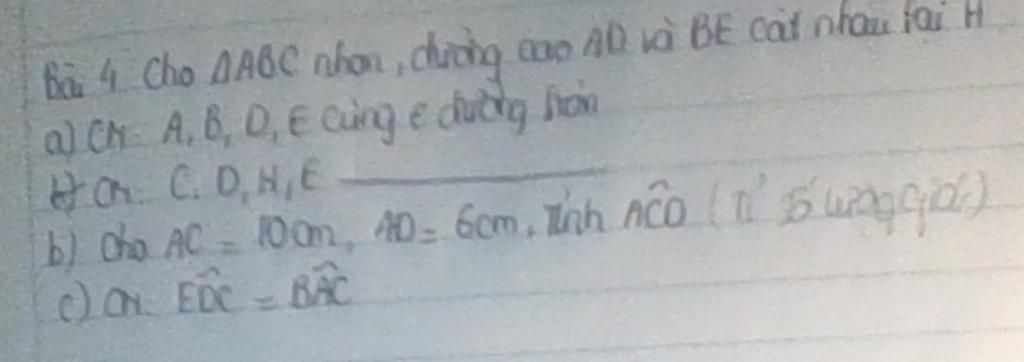 Bài 4. Cho ΔABC nhọn, đường cao AD và BE cắt nhau tại H
a) CM: A, B, D, E cùng ∈ đường tròn
b) CM. C, D, H, E ————
b) Cho AC = 10cm, AD = 6cm, Tính AĈD (tỉ số lượng giác)
c) CM. ED̂C = BÂC